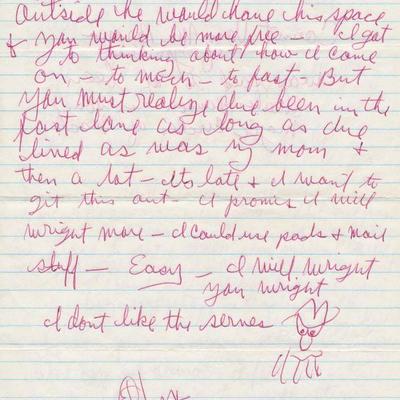 Outside he would have his space
& you would be more free - I got
to thinking about how I come
on - to much - to fast - But
you must realize Ive been in the
fast lane as long as Ive
lived as was my mom &
then a lot - Its late & I want to
git this out - I promis I will
wright more - I could use pads & mail
stuff - Easy - I will wright
you wright
I dont like the serves